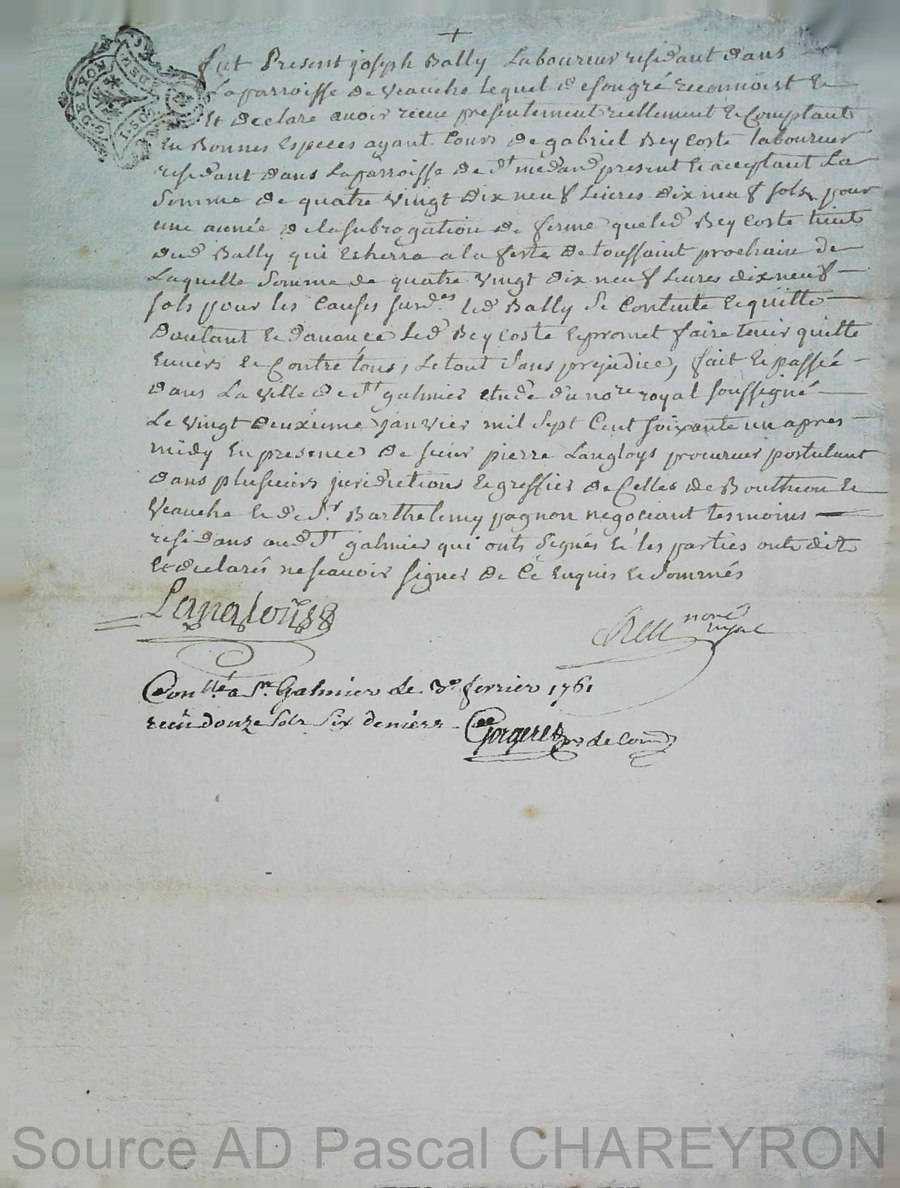 +
fut Present joseph Bally Laboureur residant dans
La parroisse de veauche Lequel desongré reconnoist Et
Et declare avoir receu presentement reellement Et Comptant
En Bonnes Especes ayant Cours de gabriel Beycoste laboureur
residant dans Laparroisse de St medard present Et aceptant La
Somme de quatre vingt dix neuf Livres dix neuf sols pour
une année de la subrogation de ferme queled Beycoste tient
dud Bally qui Echerra a la feste de toussaint prochaine de
Laquelle Somme de quatre vingt dix neuf Livres dix neuf
sols pour les Causes susd.es led Bally Se Contente Et quitte
dautant Et davance Led Beycoste Et promet faire tenir quitte
Envers Et Contre tous, Le tout Sans prejudice, fait Et passé
dans La ville de St galmier etude du nore royal soussigné
Le vingt deuxieme janvier mil sept Cent soixante un apres
midy En presence de sieur pierre Langloys procureur postulant
dans plusieurs juridictions Et greffier de Celles de Bouthéon Et
Veauche Et de Sr Barthelemy pagnon negociant tesmoins
residans aud St galmier qui onts signés Et les parties onts dit
Et declarés ne scavoir signer de Ce Enquis Et Sommés
Langloys
nore royal
Conllé a St Galmier le 3e fevrier 1761
reçu douze sols six deniers